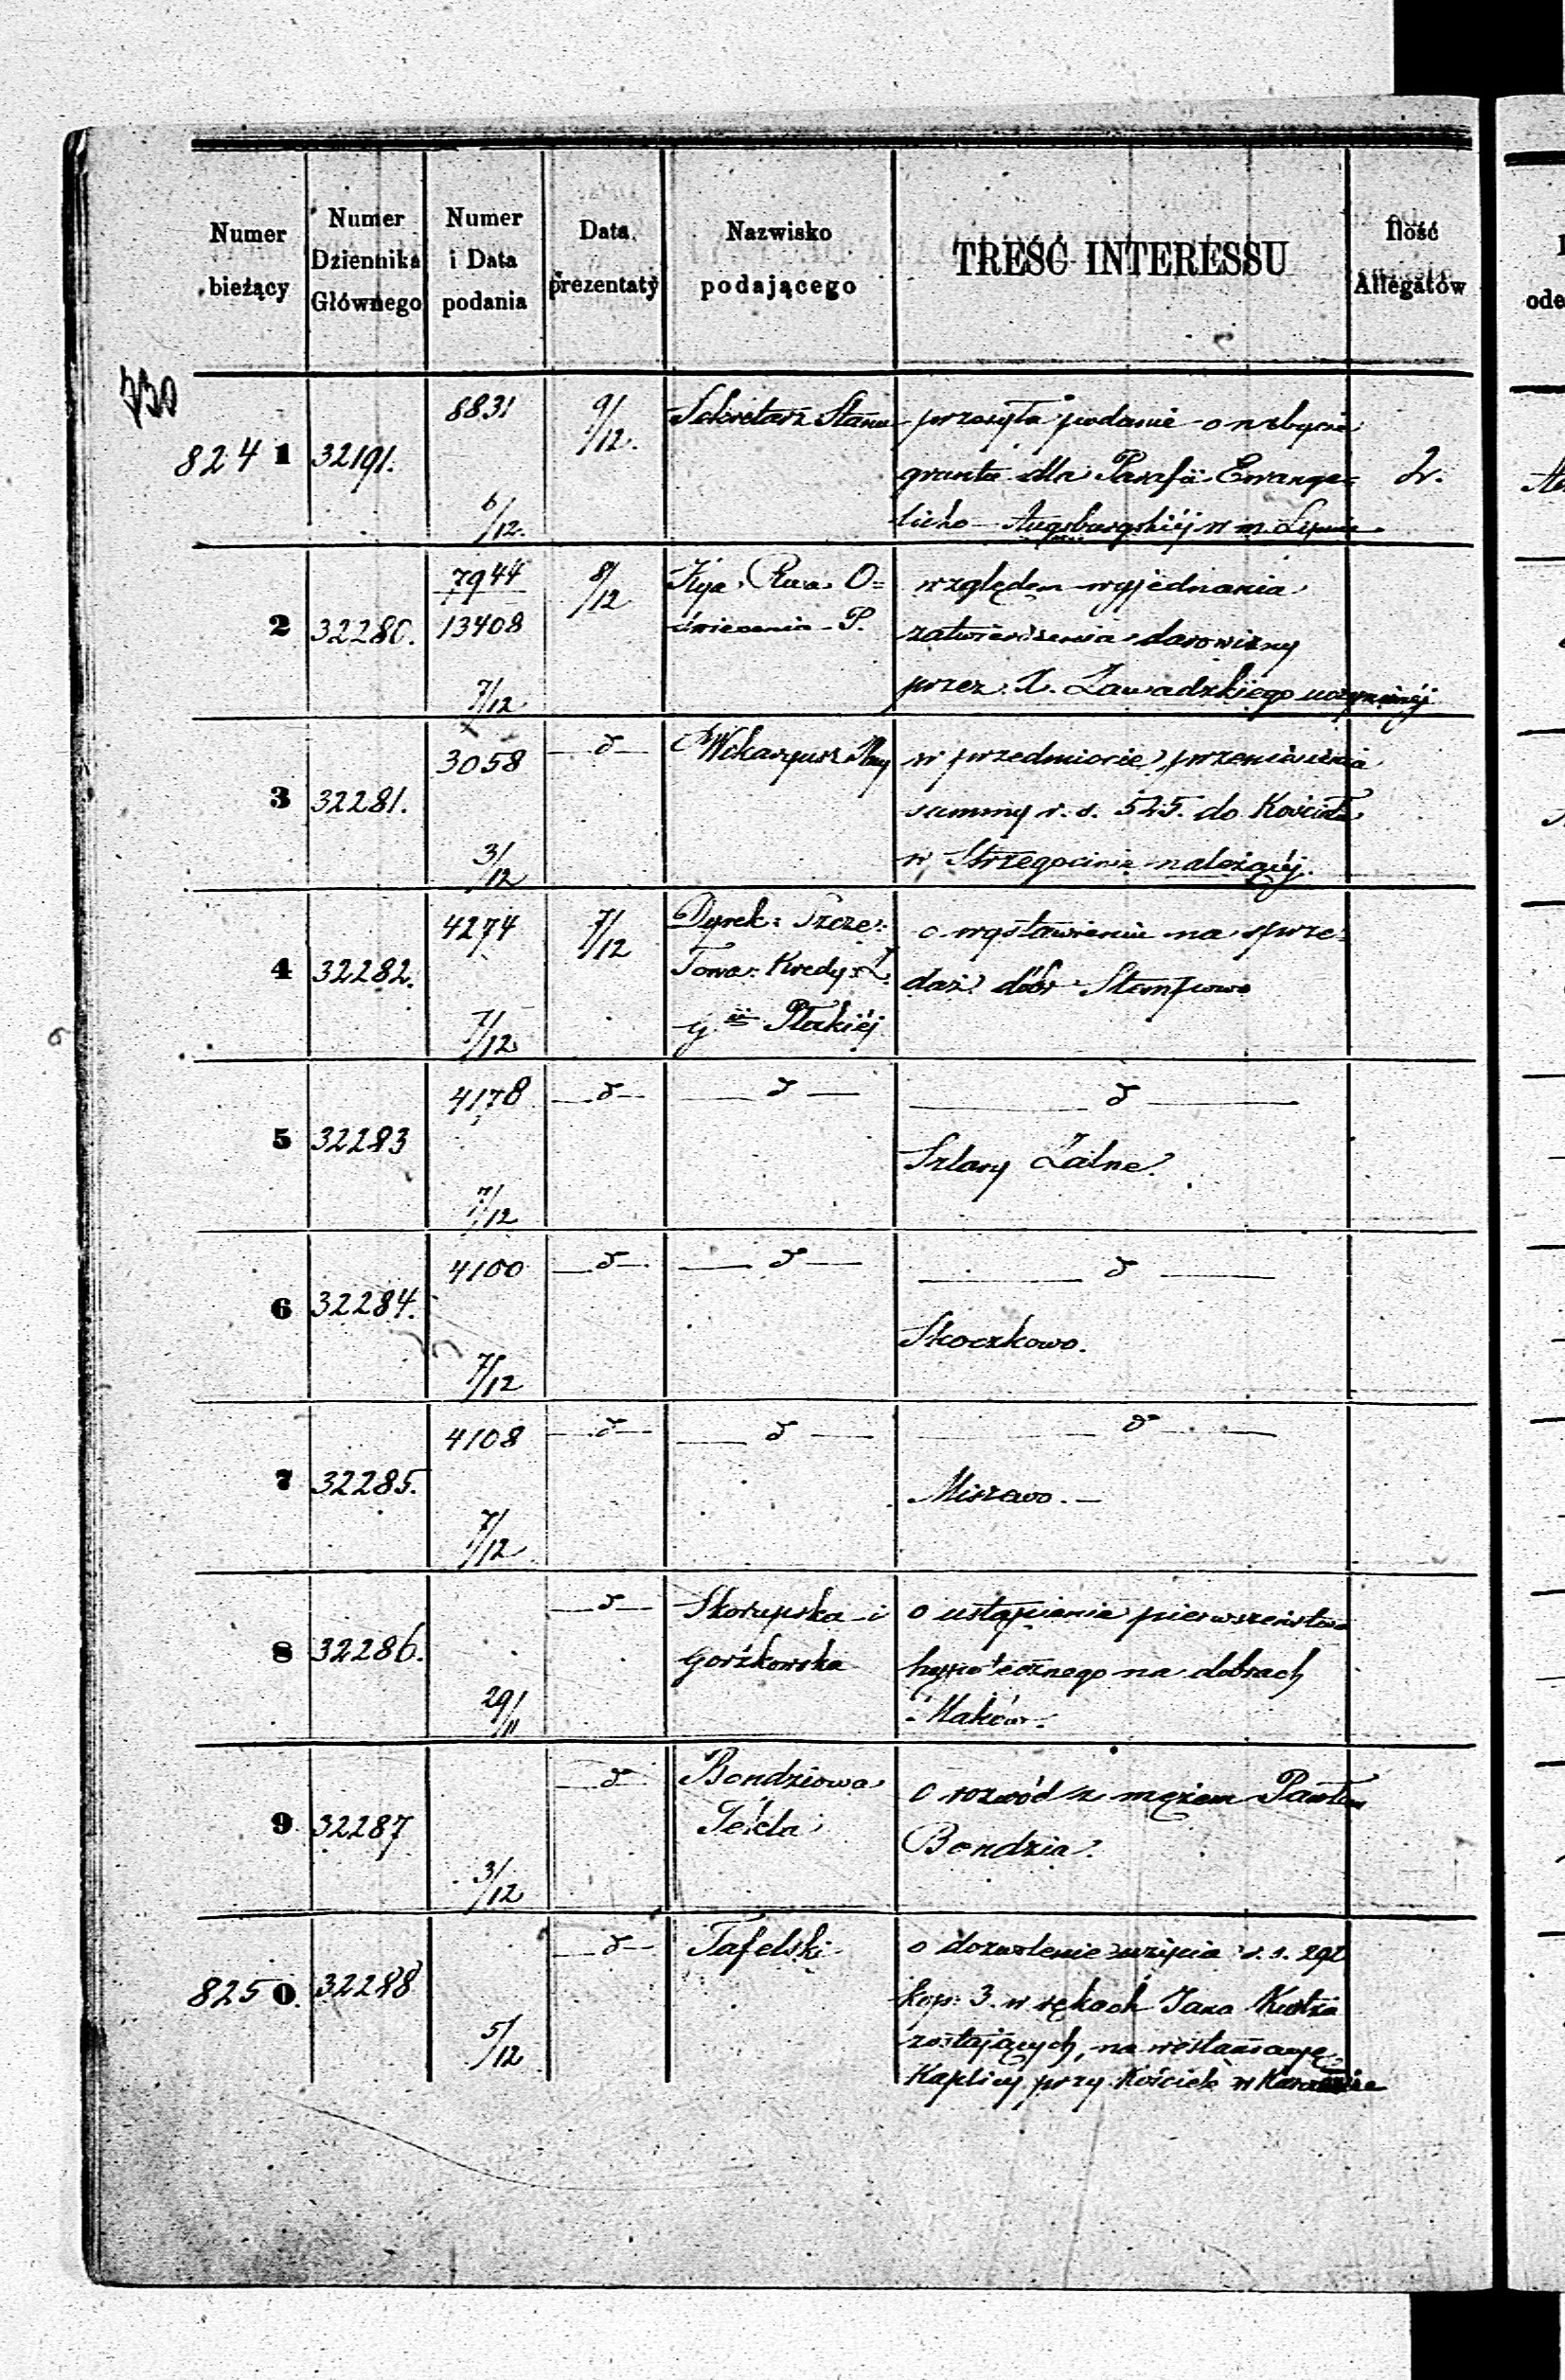 Numer bieżący
Numer Dziennika Głównego
Numer i Data podania
Data prezentaty
Nazwisko podającego
TREŚĆ INTERESSU
Ilość Allegatów
8241 32191. 8831 6/12. 9/12. Sekretarz Stanu przesyła podanie o nabycie
gruntu dla Parafii Ewange=
licko-Augsburgskiéj w m. Lipnie
2.
2 32280. 7944 13408 7/12 8/12 Kija Rzą. O=
świecenia P.
względem wyjednania
zatwierdzenia darowizny
przez X. Zawadzkiego uczynionéj
3 32281. 3058 3/12 d w przedmiocie przeniesienia
summy r. s. 525. do Kościoła
w Strzegocinie należącéj.
4 32282. 4274 7/12 7/12 Dyrek: Szcze:
Towa: Kredy: Z.
G. Płockiéj
o wystawienie na sprze=
daż dóbr Stempowo
5 32283 4178 7/12 d d d
Szlasy Żalne.
6 32284. 4100 7/12 d d d
Skoczkowo.
7 32285. 4108 7/12 d d d
Miszewo. —
8 32286. 29/11 d Skorupska i
Gorźkowska
o ustąpienie pierwszeństwa
hypotecznego na dobrach
Maków.
9 32287 3/12 d Bondziowa
Tekla
o rozwód z mężem Pawłem
Bondzia.
8250. 32288 5/12 d Tafelski
o dozwolenie użycia r. s. 292
kop: 3. w rękach Jana
zostających, na restauracyę
Kaplicy przy Kościele w